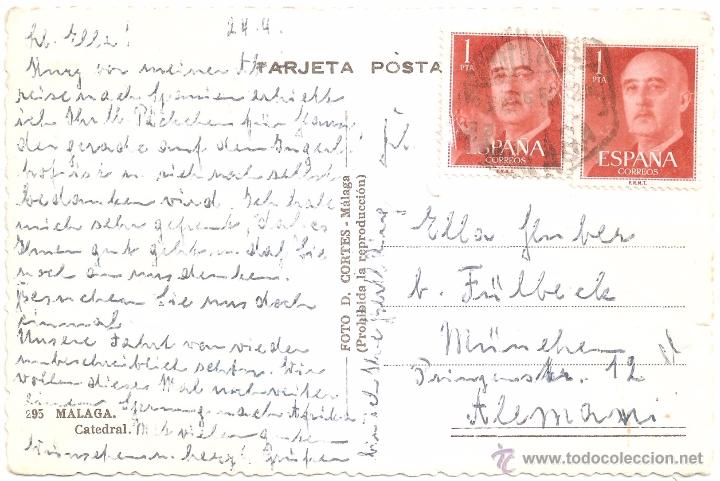 Lb. Ella!
24.4.
TARJETA POSTA
Kurz vor meiner
reise nach Spanien erhielt
ich Ihr lb. Päckchen für
der gerade auf dem
ist u. sich noch selbst
bedanken wird. Ich habe
mich sehr gefreut, daß es
Ihnen gut geht u. daß Sie
noch an uns denken.
Besuchen Sie uns doch
einmal.
Unsere Fahrt war wieder
unbeschreiblich schön. Wir
wollen dieses Mal noch
nach Afrika
295 MALAGA.
Catedral.
Mit vielen guten
Wünschen u. herzl. Grüßen
FOTO D. CORTES - Málaga
(Prohibida la reproducción)
1
PTA
ESPAÑA
CORREOS
F.N.M.T.
1
PTA
ESPAÑA
CORREOS
F.N.M.T.
Fr.
Ella Huber
b. Fülbeck
München
12
Alemani
www.todocoleccion.net
tc